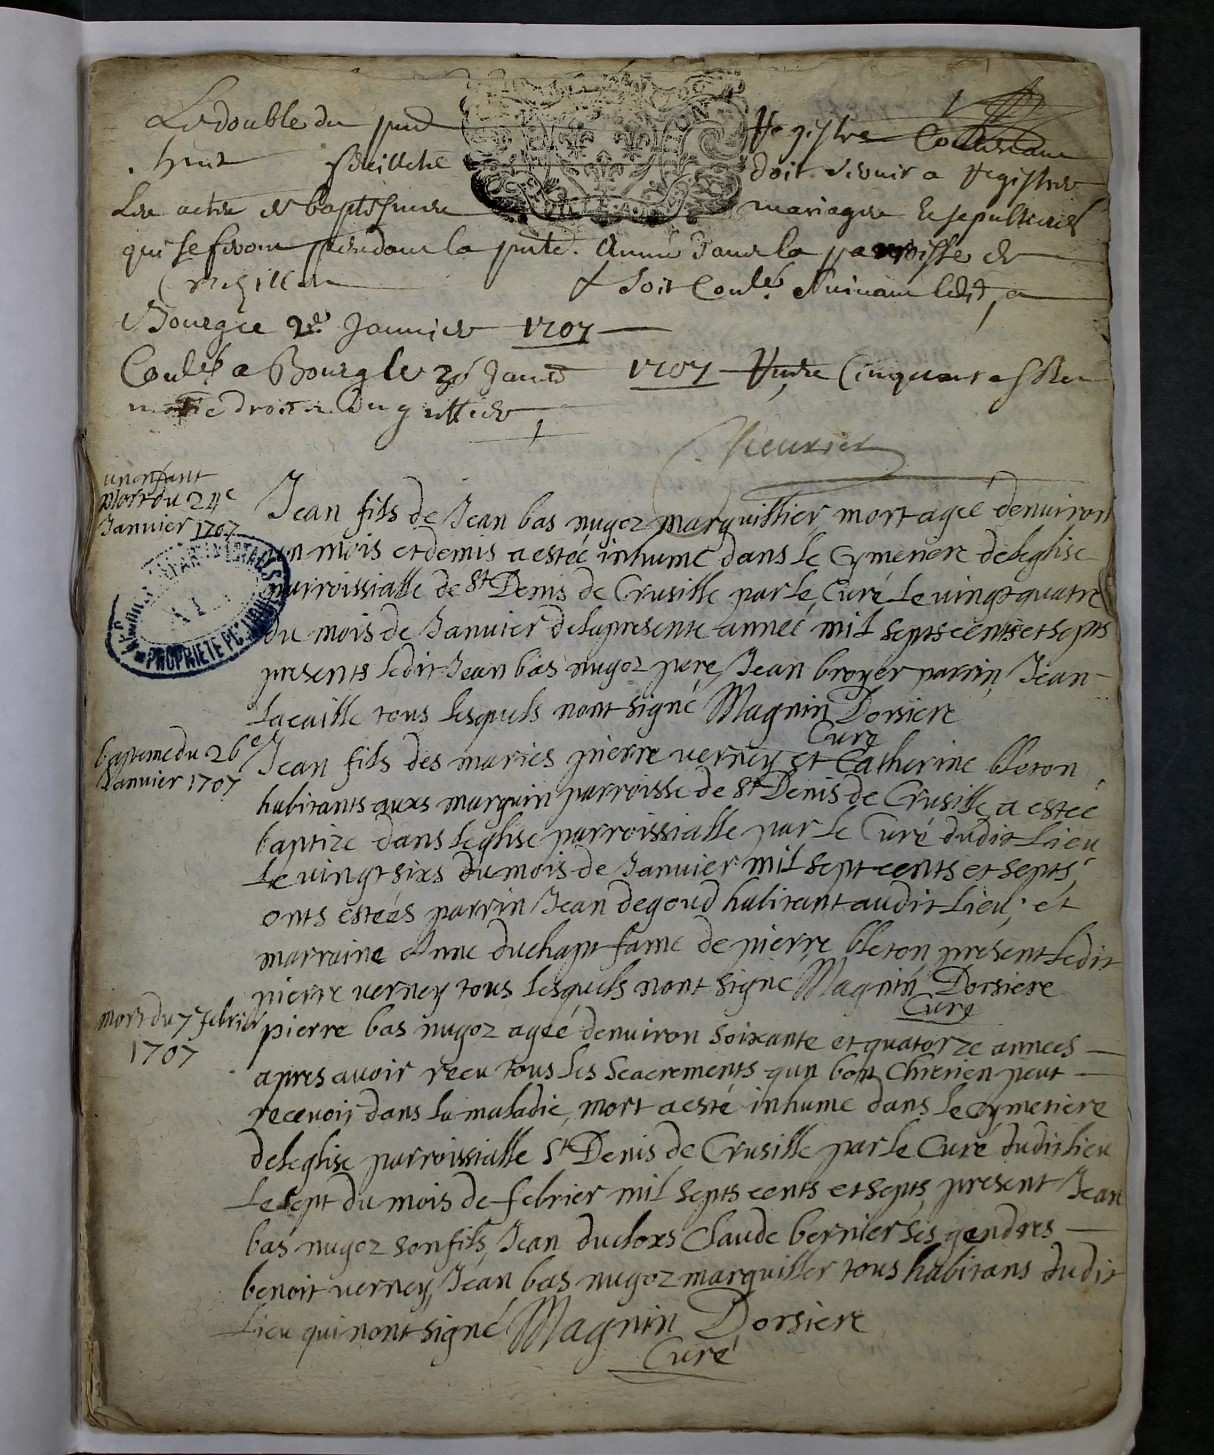 Le double du pnt Registre Contenant
huit feuillets doit servir a Registrer
Les actes de baptesmes mariages & sepultures
qui se feront pendant la pnte. Année dans la parroisse de
Cruzilles & soit Conlé. suivant ledit, a
Bourg ce 2e Janvier 1707
Conlé a Bourg le 26 Janv 1707 Cinquante solz
Cheurier
un enfant
mort du 24e
Janvier 1707
Jean fils de Jean bas nugoz marguillier mort ageé denuiron
un mois et demis a estéé inhumé dans le Cymetiere deleglise
parroissialle de St Denis de Crusille par Le Curé Le uingt quatre
du mois de Januier delapresente anneé mil septs cents et septs
presents ledit Jean bas nugoz pere, Jean broyer parrin, Jean
Lacaille tous lesquels nont signé Magnin Dorsiere
Curé
baptemedu 26e
Januier 1707
Jean fils des maries pierre verney et Catherine bleton
habitants auxs marguin parroisse de St Denis de Crusille a estéé
baptize dans leglise parroissialle par le Curé dudit Lieu
Le uingt sixs du mois de Januier mil sept cents et septs,
onts estéés parrin Jean degoud habitant audit Lieu, et
marraine Anne duchapt fame de pierre bleton present Ledit
pierre verney tous lesquels nont signé Magnin Dorsiere
Curé
mort du 7 febrier
1707
pierre bas nugoz ageé denuiron soixante et quatorze annees
apres auoir receu tous les Seacrements qun bon Chretien peut
receuoir dans la maladie, mort a esté inhumé dans le Cymetiere
deleglise parroissialle St Denis de Crusille par le Curé dudit Lieu
Le sept du mois de febrier mil septs cents et septs present Jean
bas nugoz son fils, Jean ducloxs Claude bernier ses gendres
benoit verney, Jean bas nugoz marguiller tous habitans dudit
Lieu qui nont signé Magnin Dorsiere
Curé
PROPRIETE PUBLIQUE